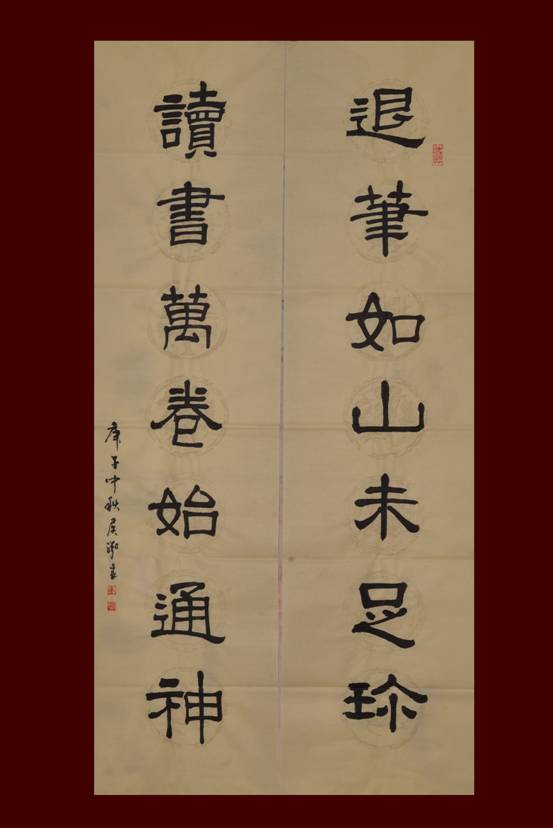 退筆如山未足珍
讀書萬卷始通神
庚子中秋